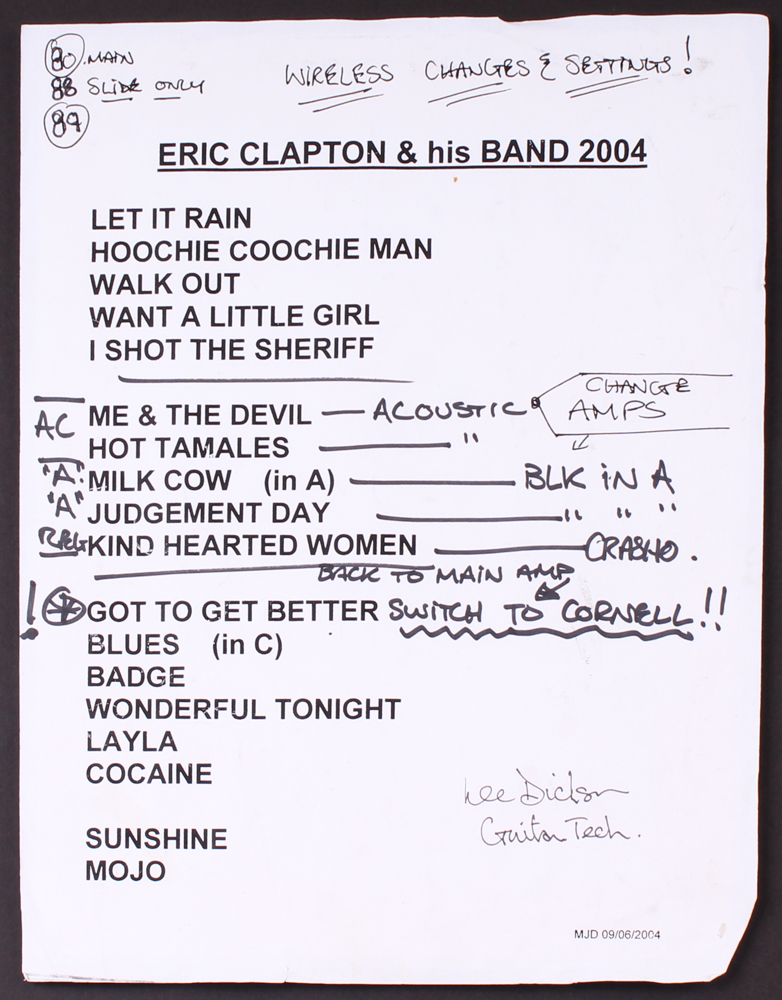 80 MAIN
88 SLIDE ONLY
WIRELESS CHANGES & SETTINGS!
89
ERIC CLAPTON & his BAND 2004
LET IT RAIN
HOOCHIE COOCHIE MAN
WALK OUT
WANT A LITTLE GIRL
I SHOT THE SHERIFF
CHANGE
AMPS
AC ME & THE DEVIL — ACOUSTIC
HOT TAMALES — "
"A" MILK COW (in A) — BLK IN A
"A" JUDGEMENT DAY — " " "
KIND HEARTED WOMEN — CRASHO.
BACK TO MAIN AMP
! GOT TO GET BETTER SWITCH TO CORNELL!!
BLUES (in C)
BADGE
WONDERFUL TONIGHT
LAYLA
COCAINE
SUNSHINE
MOJO
Lee Dickson
Guitar Tech.
MJD 09/06/2004